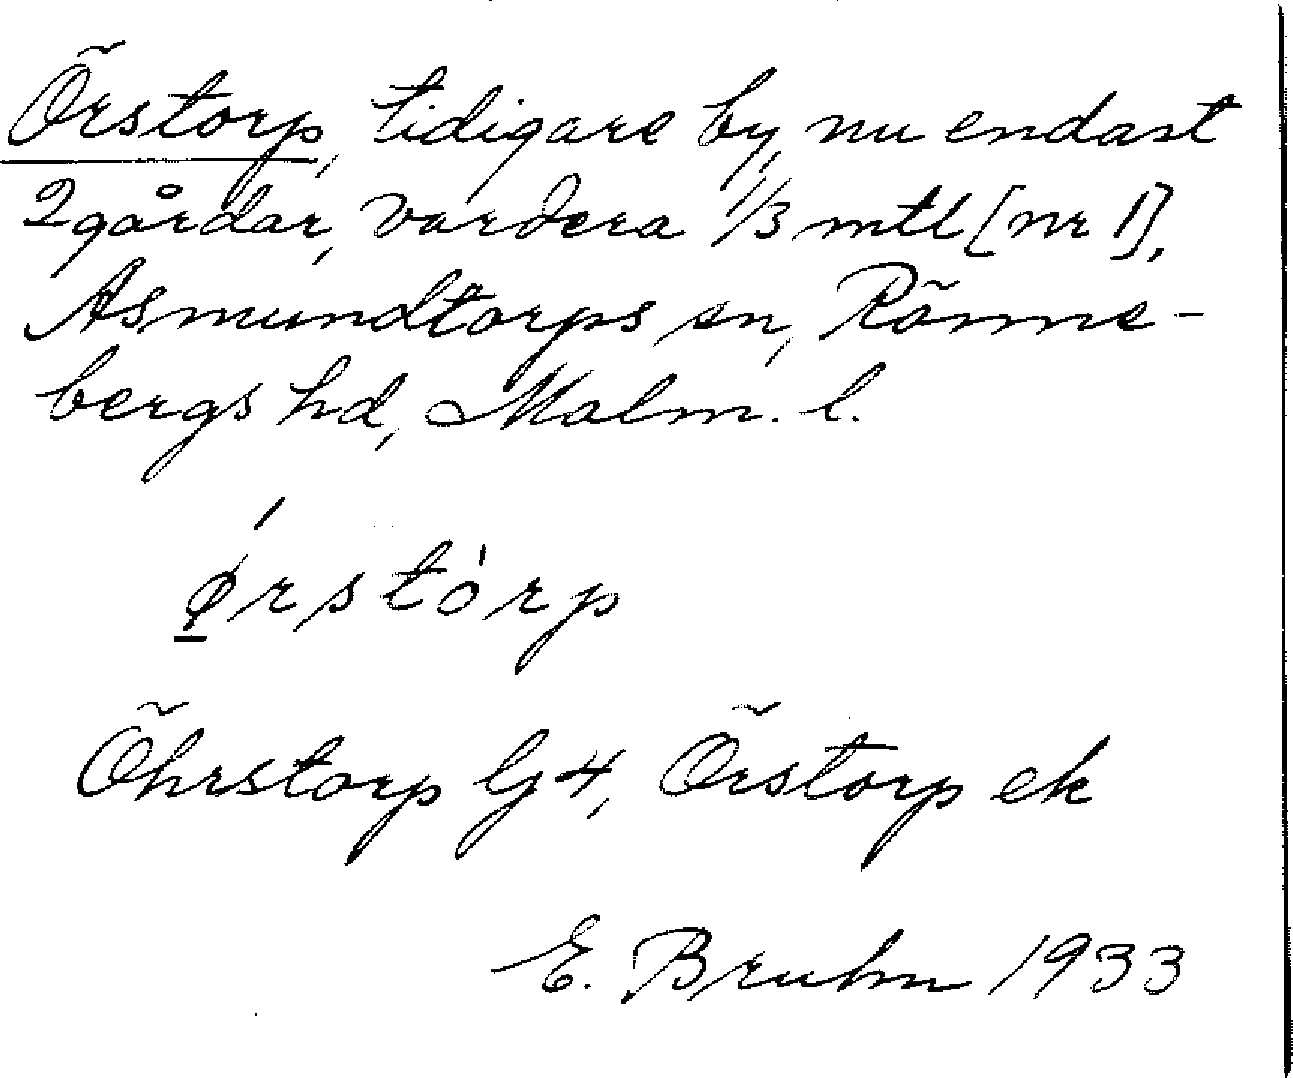 Örstorp, tidigare by, nu endast
2 gårdar, vardera 1/3 mtl [nr 1],
Asmundtorps sn, Rönne-
bergs hd, Malm. l.
ǿrstȯrp
Öhrstorp Gj 4, Örstorp ek
E. Bruhn 1933